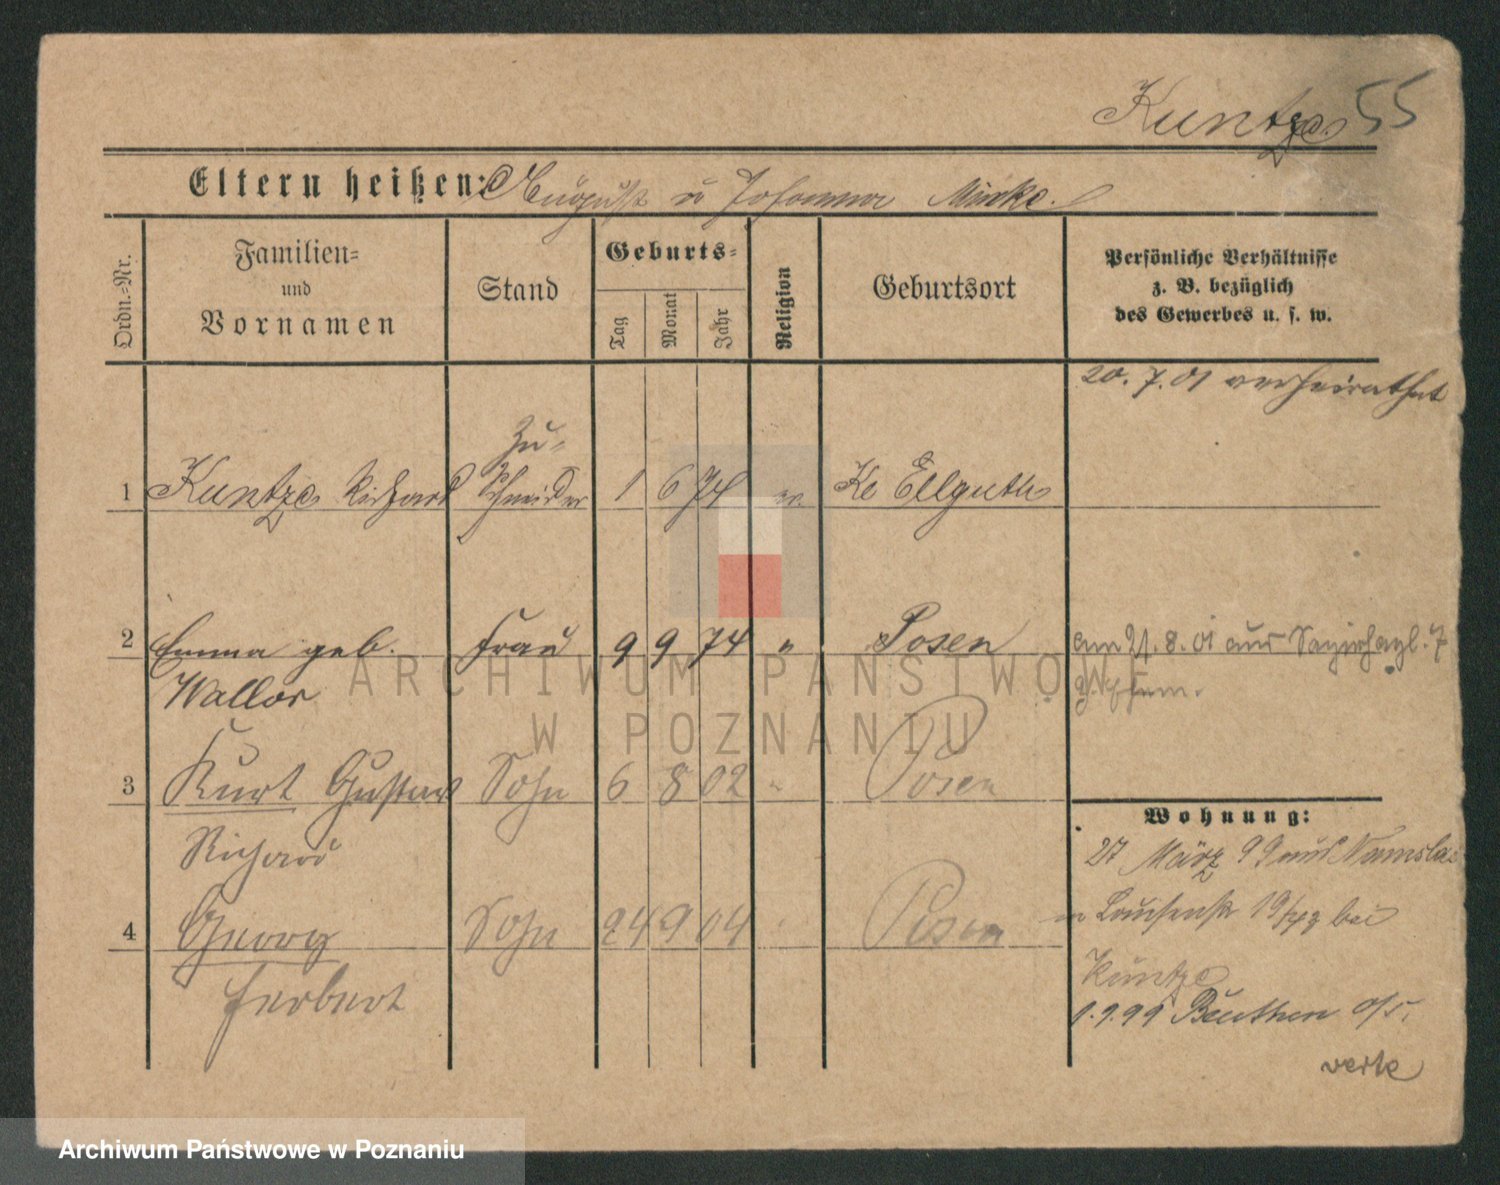 Kuntze 55
Eltern heißen: August u Johanna Minke.
Ordn.-Nr.
Familien-
und
Vornamen
Stand
Geburts-
Tag
Monat
Jahr
Religion
Geburtsort
Persönliche Verhältnisse
z. B. bezüglich
des Gewerbes u. s. w.
20. 7. 01 verheirathet
Zu-
1 Kuntze Richard schneider 1 6 74 ev. Kl Ellguth
2 Emma geb. Frau 9 9 74 " Posen
am 21. 8. 01 aus
Wallor
3 Kurt Gustav Sohn 6 8 02 " Posen
Richard
4 Georg Sohn 24 9 04 Posen
Herbert
Wohnung:
27 März 99 aus Namslau
Louisenstr 19 bei
Kuntze
1.9.99 Beuthen o/s.
verte
ARCHIWUM PAŃSTWOWE
W POZNANIU
Archiwum Państwowe w Poznaniu